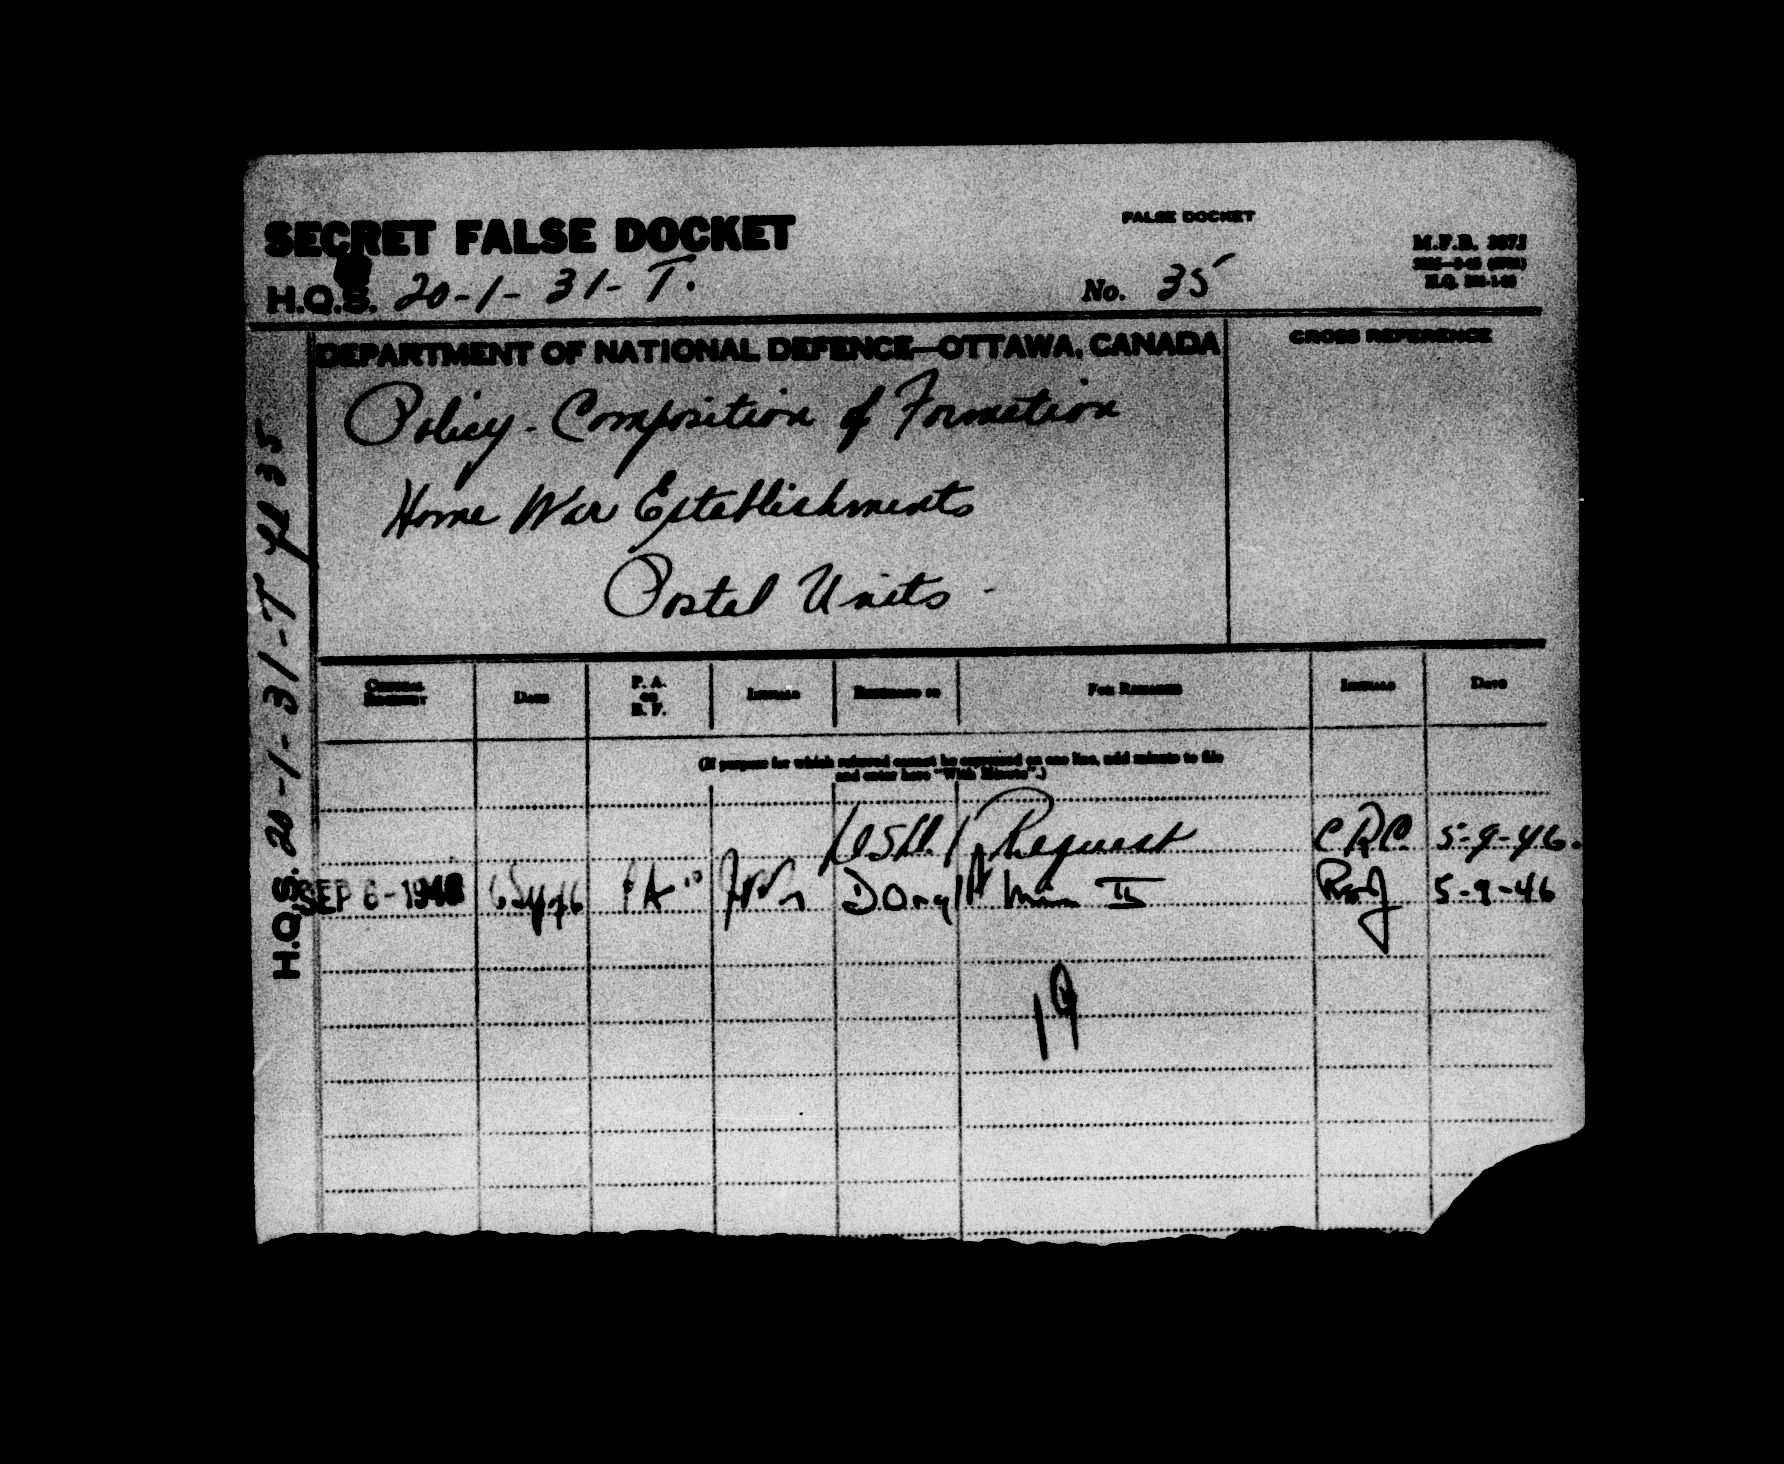 SECRET FALSE DOCKET
FALSE DOCKET
M.F.B.
H.Q.S. 20-1-31-T.
No. 35
DEPARTMENT OF NATIONAL DEFENCE—OTTAWA, CANADA
CROSS REFERENCE
Policy - Composition of Formation
Home War Establishments
Postal Units -
H.Q.S. 20-1-31-T fd 35
CENTRAL REGISTRY
DATE
P. A.
OR
B. F.
INITIALS
REFERRED TO
FOR REMARKS
INITIALS
DATE
(If purpose for which referred cannot be expressed on one line, add minute to file
and enter here "With Minute".)
Request
CRC.
5-9-46.
SEP 6-1946
PA
D Org
Min II
5-9-46